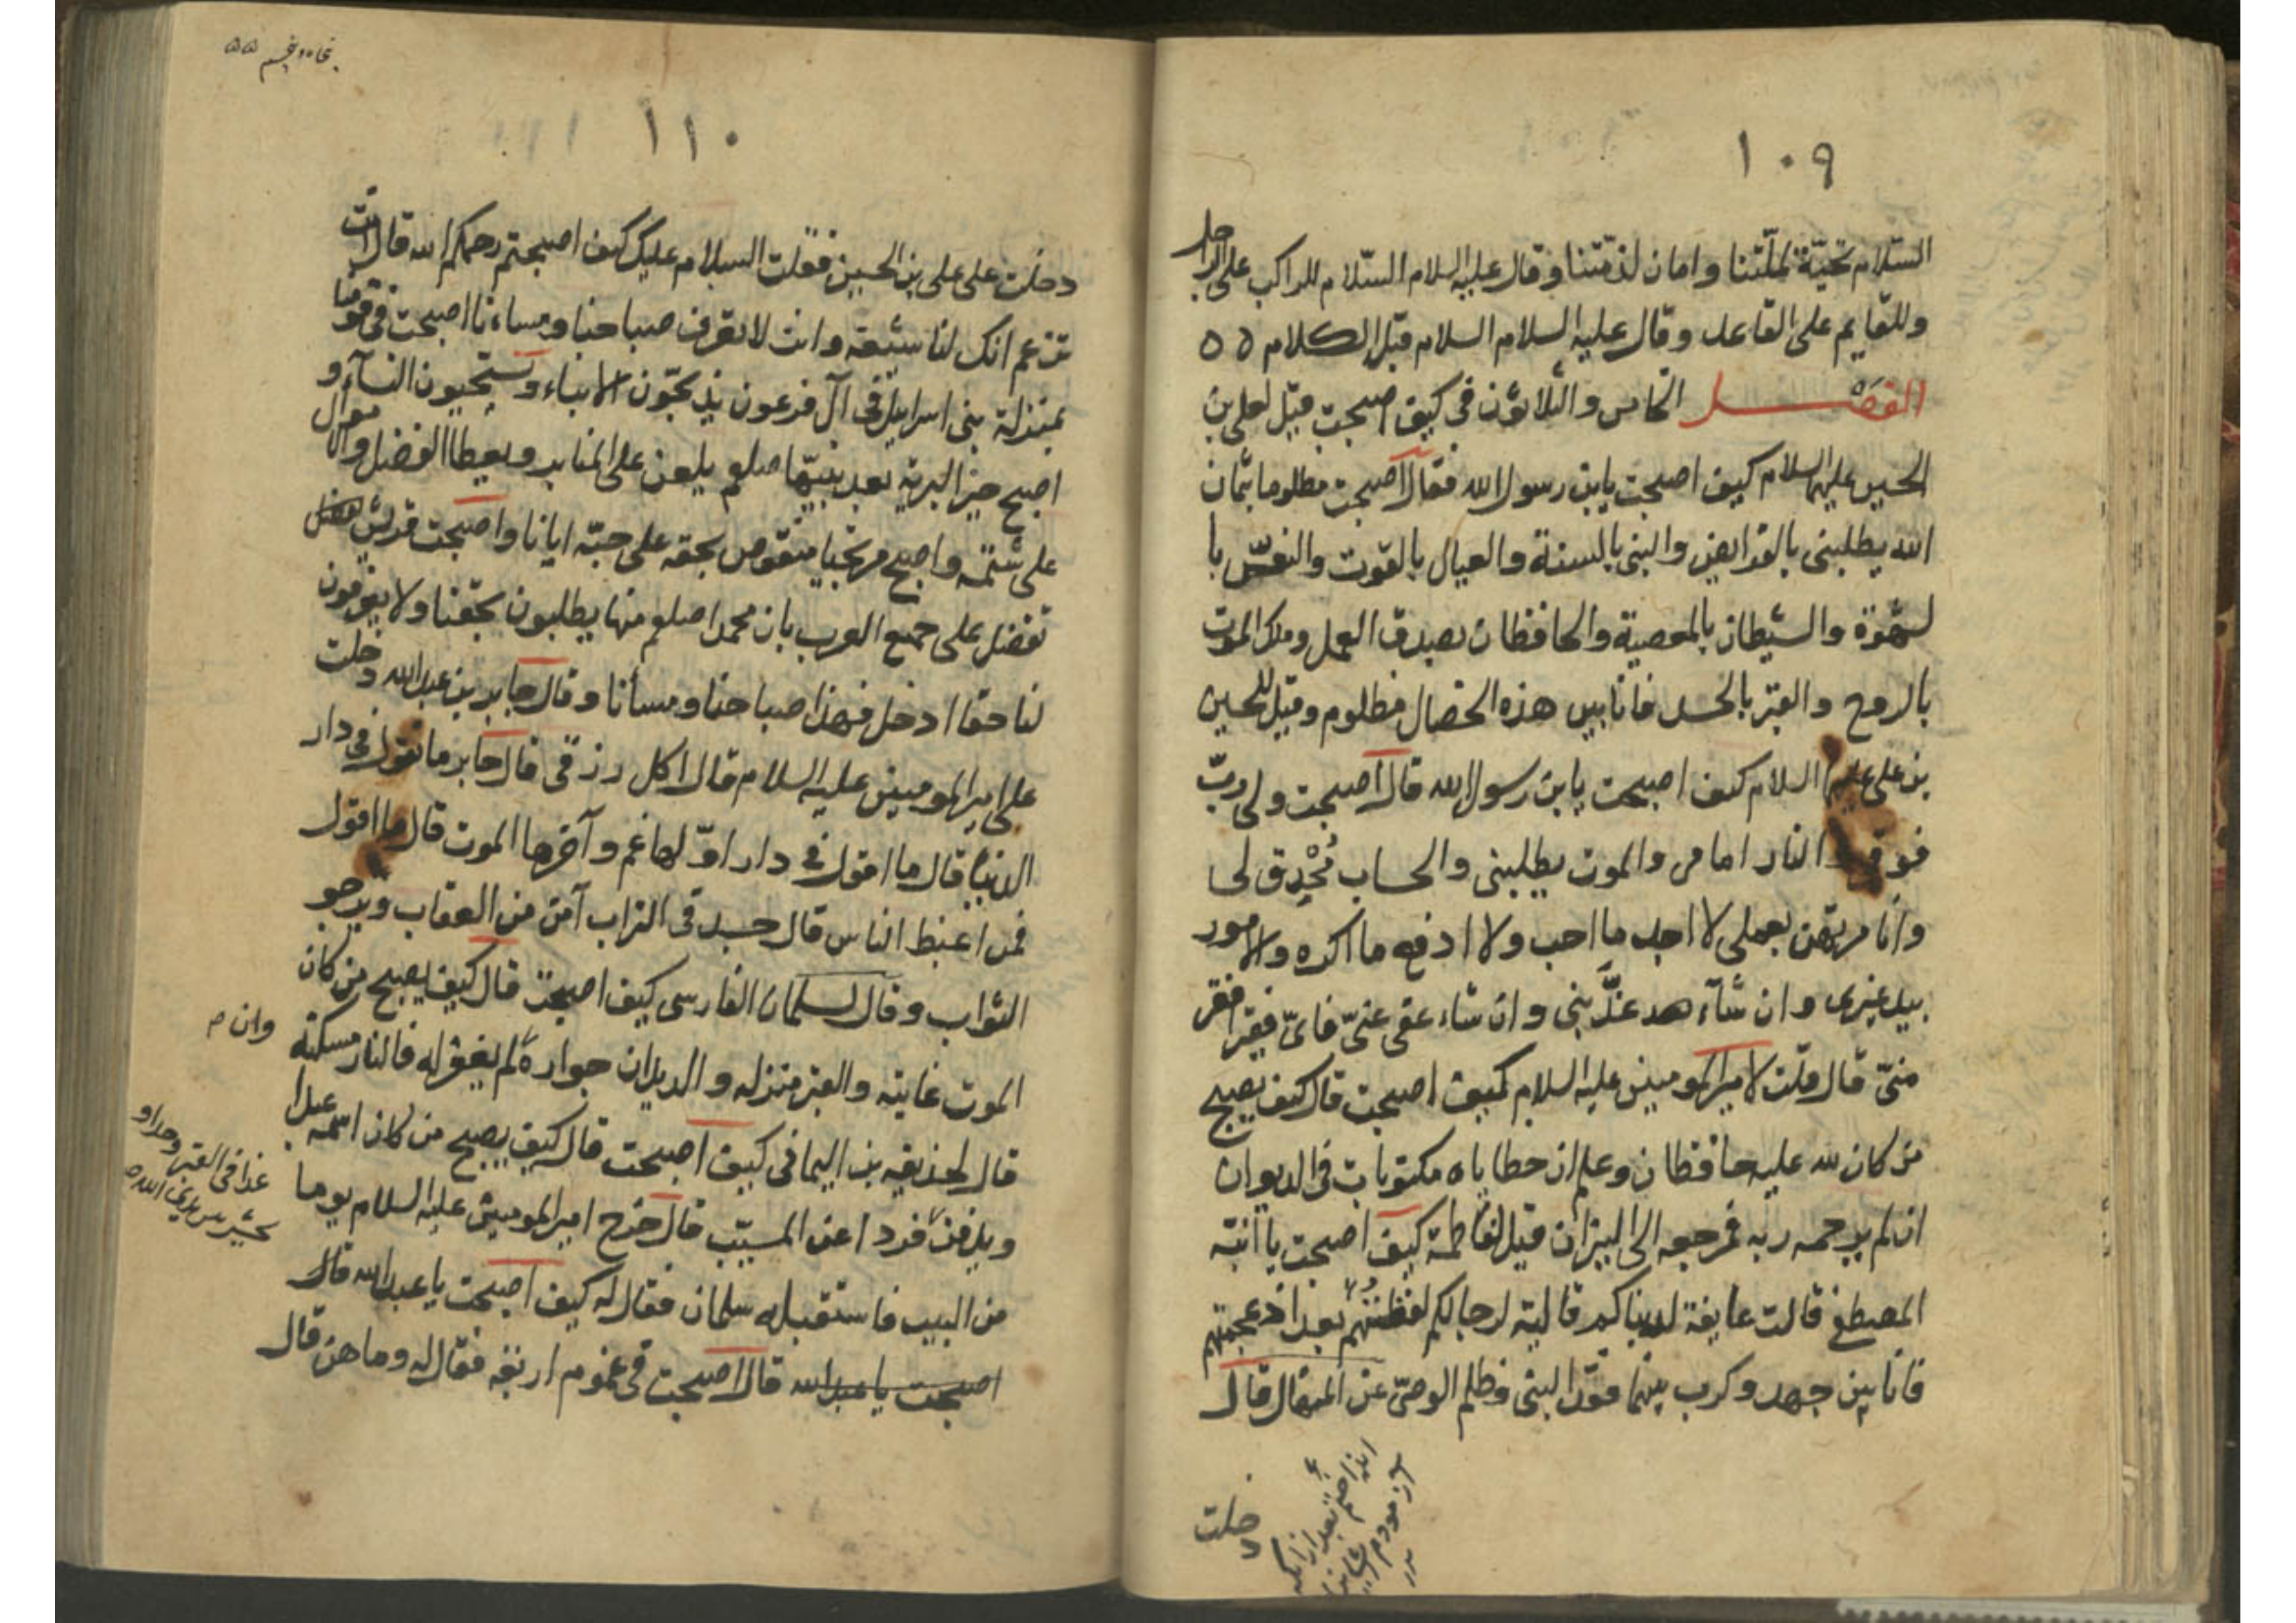 ١٠٩
السّلام تحيّة لملّتنا وامان لذمّتنا وقال عليه السلام السّلام للراكب على الراجل
وللقايم على القاعد وقال عليه السلام السلام قبل الكلام ٥٥
الفصل الخامس والثلاثون في كيف اصبحت قيل لعلي بن
الحسين عليهما السلام كيف اصبحت يابن رسول الله فقال اصبحت مطلوبا بثمان
الله يطلبني بالفرايض والنبي بالسنة والعيال بالقوت والنفس با
لشهوة والشيطان بالمعصية والحافظان بصدق العمل وملك الموت
بالروح والقبر بالجسد فانا بين هذه الخصال مطلوم وقيل للحسين
بن علي عليهما السلام كيف اصبحت يابن رسول الله قال اصبحت ولي ربّ
فوقي النار امامي والموت يطلبني والحساب مُحْدِق لي
وانا مرتهن بعملي لا اجد ما احب ولا ادفع ما اكره والامور
بيد غيري وان شآء عذّبني وان شاء عفى عنّي فايّ فقير افقر
منّي قال قلت لامير المومنين عليه السلام كيف اصبحت قال كيف يصبح
من كان لله عليه حافظان وعلم ان خطاياه مكتوبات في الديوان
ان لم يرحمه ربه فمرجعه الى النيران قيل لفاطمة كيف اصبحت يا ابنة
المصطفى قالت عايفة لدنياكم قالية لرجالكم لفظتهم بعد اذ عجمتهم
فانا بين جهد وكرب بينما فقد النبي وظلم الوصيّ عن المنهال قال
دخلت
١١٠
دخلت على علي بن الحسين فقلت السلام عليك كيف اصبحتم رحمكم الله قال انت
تزعم انك لنا شيعة وانت لا تعرف صباحنا ومساءنا اصبحت في قومنا
بمنزلة بني اسرائيل في آل فرعون يذبحّون الابناء ويستحيون النسآء و
اصبح خير البرية بعد نبيّها صلعم يلعن على المنابر ويعطا الفضل والاموال
على شتمه واصبح من يحبنا منقوص بحقه على حبّه ايانا واصبحت قريش
تفضل على جميع العرب بان محمدا صلعم منها يطلبون بحقنا ولا يعرفون
لنا حقا ادخل فهذا صباحنا ومسأنا وقال جابر بن عبدالله دخلت
على امير المومنين عليه السلام قال آكل رزقي قال جابر ما تقول في دار
الدنيا قال ما اقول في دار اوّلها غم وآخرها الموت قال ما اقول
فمن اغبط الناس قال جسد في التراب آمن من العقاب ويرجو
الثواب وقال لسلمان الفارسي كيف اصبحت قال كيف يصبح من كان
الموت غايته والقبر منزله والديدان جواره لم يغفر له فالنار مسكنه
وان م
قال لحذيفه بن اليماني كيف اصبحت قال كيف يصبح من كان اسمه عبدا
ويدفن فردا عن المسيّب قال خرج امير المومنين عليه السلام يوما
غدا في القبر
من البيت فاستقبله سلمان فقال له كيف اصبحت يا عبدالله قال
اصبحت يا عبدالله قال اصبحت في غموم اربعة فقال له وما هن قال